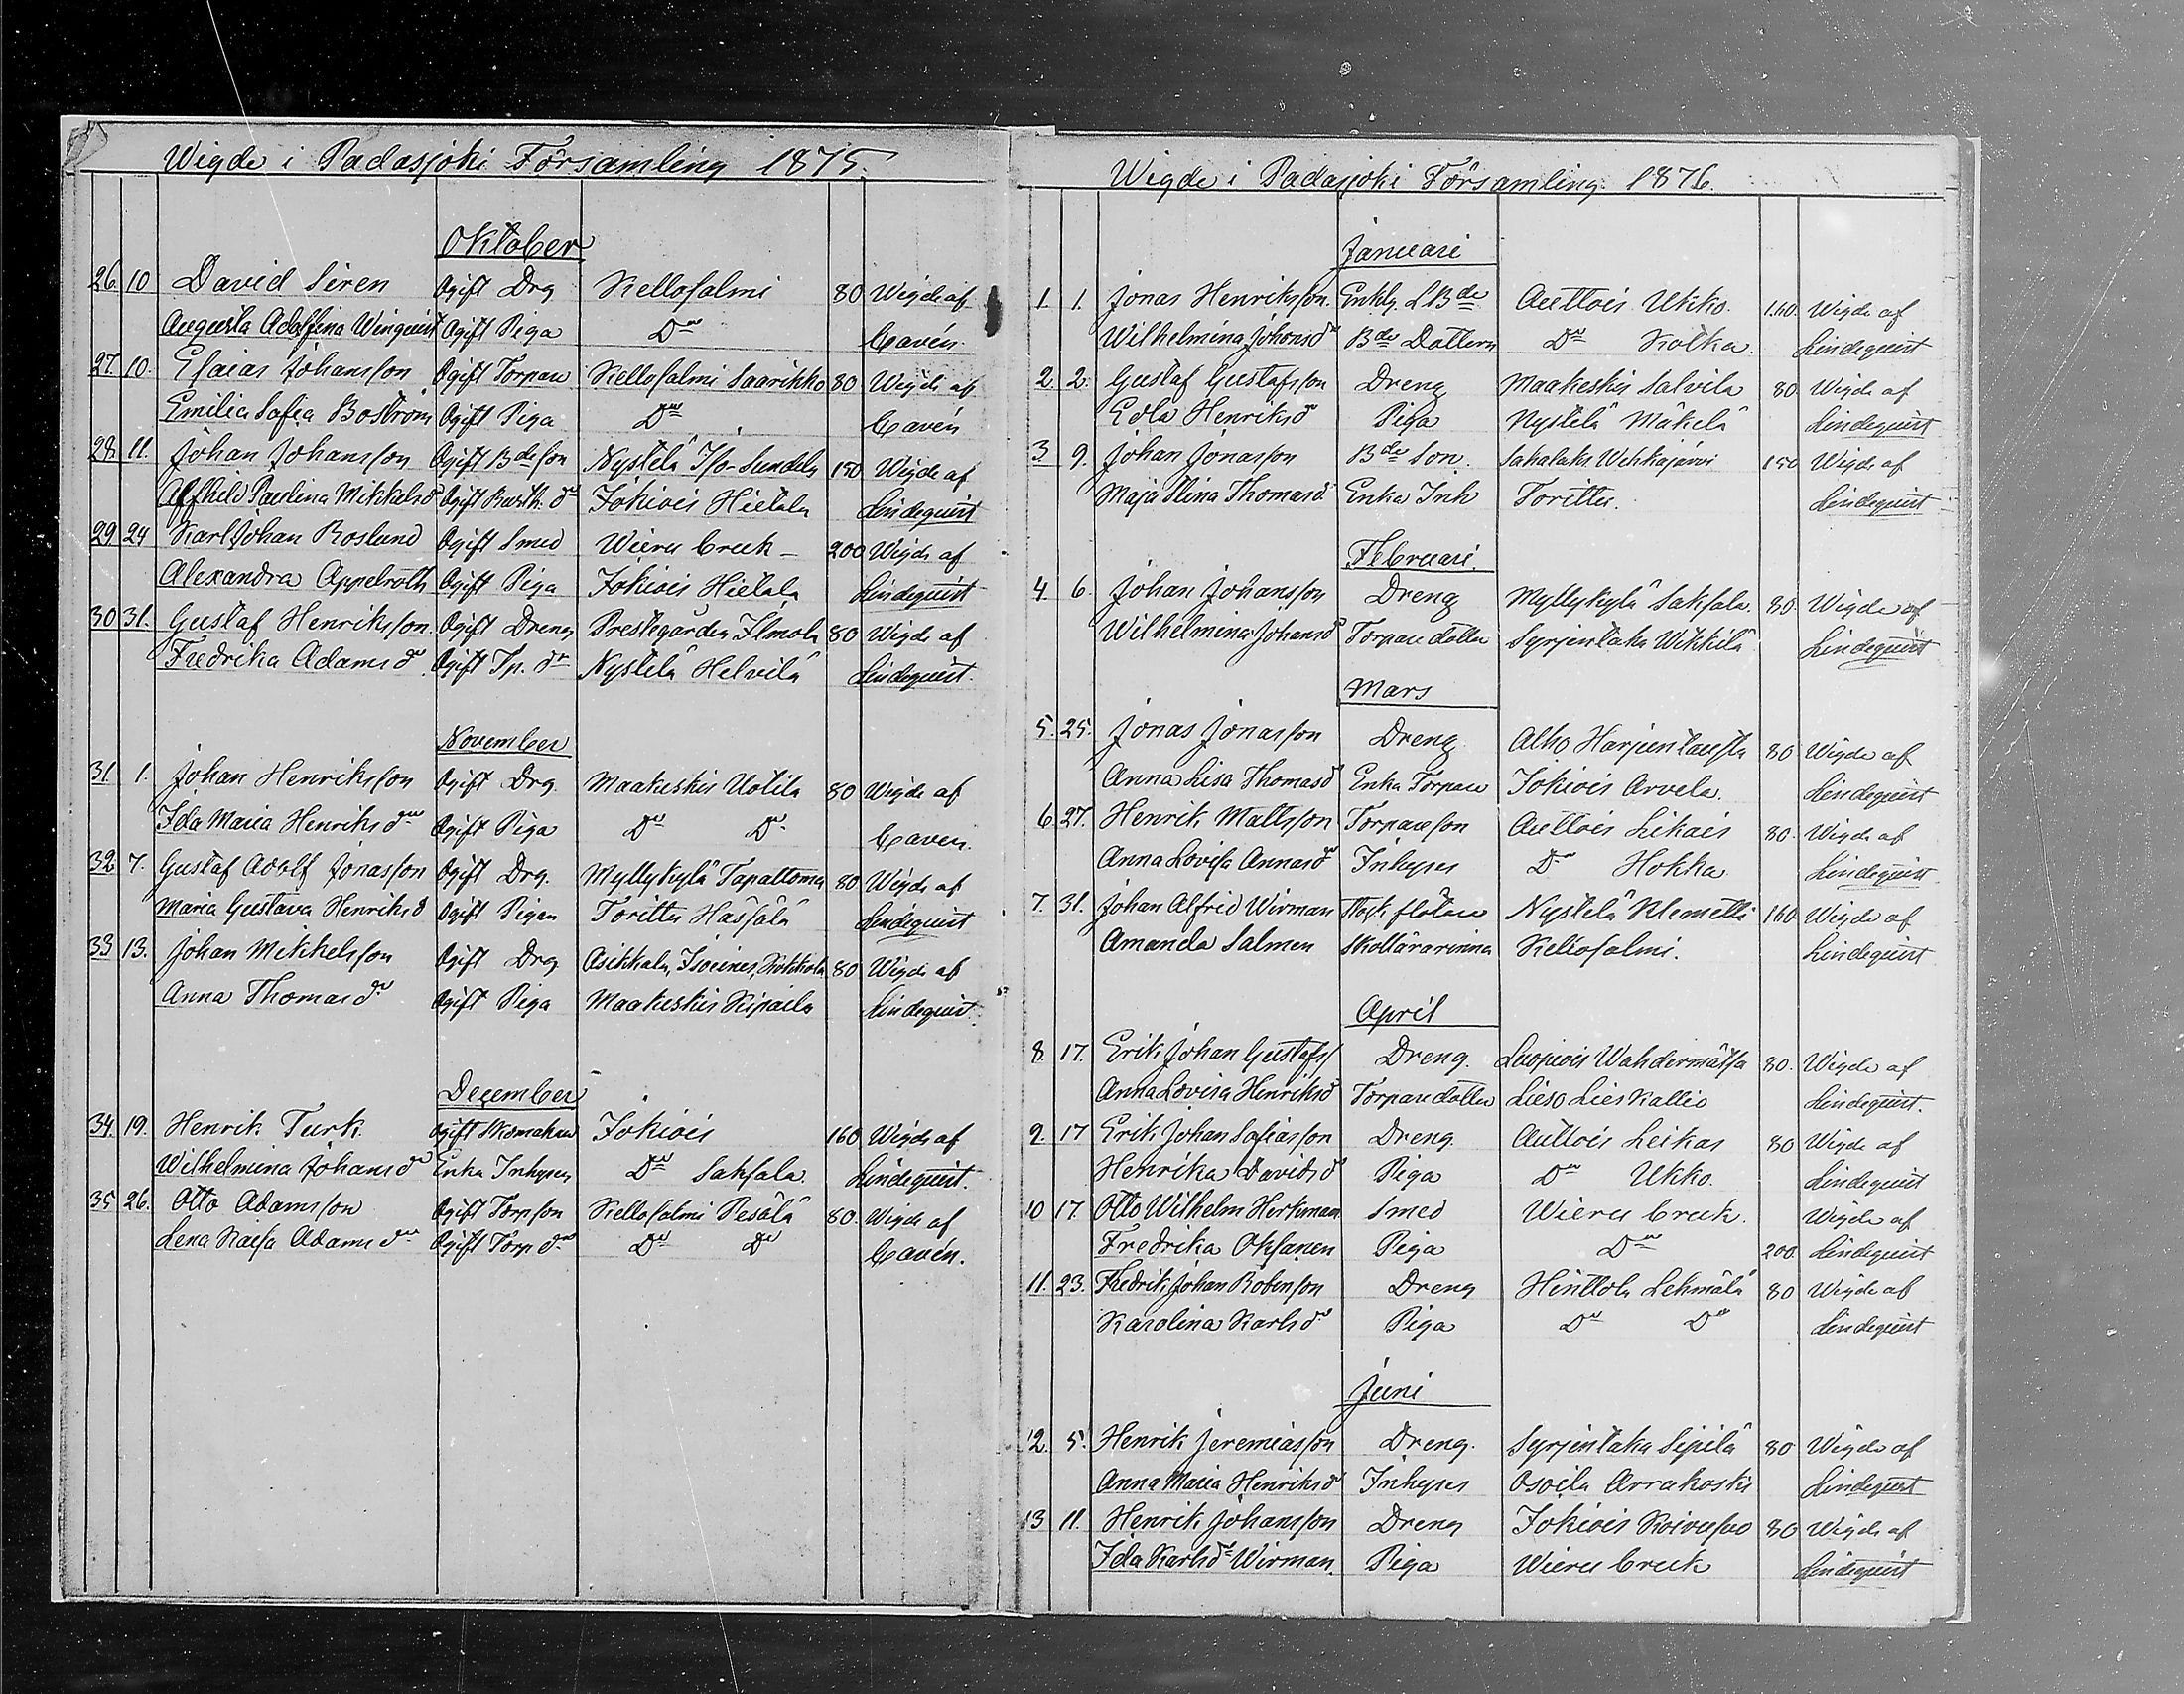 Wigde i Padasjoki Församling 1875.
Oktober
26. 10 David Siren Ogift Drg Kellosalmi 80 Wigde af
Augusta Adolfina Winquist Ogift Piga Do Cavén.
27. 10. Esaias Johansson Ogift Torpare Kellosalmi Saarikko 80 Wigde af
Emilia Sofia Boström Ogift Piga Do Cavén
28. 11. Johan Johansson Ogift Bde Son Nystelä Iso-Sundela 150 Wigde af
Alfhild Paulina Mikkelsdr Ogift Rusth. dr Jokiois Hietala Lindequist
29 24 Karl Johan Roslund Ogift Smed Wieru bruk - 200 Wigde af
Alexandra Appelroth Ogift Piga Jokiois Hietala Lindequist
30 31. Gustaf Henriksson. Ogift Dreng Prestegården Ilmola 80 Wigde af
Fredrika Adamsdr Ogift Tp. dr Nystelä Helvilä Lindequist.
November
31. 1. Johan Henriksson Ogift Drg. Maakeskis Uotila 80 Wigde af
Ida Maria Henriksdr Ogift Piga Do Do Caven.
32 7. Gustaf Adolf Jonasson Ogift Drg. Myllykylä Tapattoma 80 Wigde af
Maria Gustava Henriksd Ogift Pigan Torittu Hassälä Lindequist
33 13. Johan Mikkelsson Ogift Drg Asikkala, Isoeines, Kokkola 80 Wigde af
Anna Thomasdr Ogift Piga Maakeskis Kipaila Lindequist.
December
34. 19. Henrik Turk. Ogift Skomakare Jokiois 160 Wigde af
Wilhelmina Johansdr Enka Inhyses Do Saksala. Lindequist.
35 26. Otto Adamsson Ogift Torpson Kellosalmi Pesälä 80. Wigde af
Lena Kaisa Adamsdr Ogift Torp dr Do Do Cavén.
Wigde i Padasjoki Församling. 1876.
Januari
1. 1. Jonas Henriksson. Enkl. LBde Auttois Ukko. 140. Wigde af
Wilhelmina Johansdr Bde Dottern Do Kotka. Lindequist
2 2. Gustaf Gustafsson Dreng Maakeskis Salvila 80. Wigde af
Edla Henriksdr Piga Nystelä Mäkelä Lindequist
3. 9. Johan Jonasson Bde Son. Sahalaks Wehkajärvi 150 Wigde af
Maja Stina Thomasd Enka Inh Toritta. Lindequist
Februari.
4 6. Johan Johansson Dreng Myllykylä Saksala. 80. Wigde af
Wilhelmina Johansd Torpare dotter Syrjentaka Wikkilä Lindequist
Mars
5. 25. Jonas Jonasson Dreng Alho Harjunlausta 80 Wigde af
Anna Lisa Thomasd Enka Torpare Jokiois Arvela. Lindequist
6. 27. Henrik Mattsson Torpareson Auttois Likais 80. Wigde af
Anna Lovisa Annasdr Inhyses Do Hokka Lindequist
7. 31. Johan Alfrid Wirman Stockflötare Nystelä Klemetti 160. Wigde af
Amanda Salmen Skollärarinna Kellosalmi. Lindequist
April
8. 17. Erik Johan Gustafs/ Dreng. Luopiois Wahdermätsa 80. Wigde af
Anna Lovisa Henriksd Torparedotter Lieso Lieskallio Lindequist.
9. 17 Erik Johan Safiasson Dreng. Auttois Leikas 80 Wigde af
Henrika Davidsd Piga Do Ukko. Lindequist
10 17. Otto Wilhelm Herkman Smed Wieru bruk. Wigde af
Fredrika Oksanen Piga Do 200. Lindequist
11. 23. Fredrik Johan Robinson Dreng Hinttola Lehmälä 80 Wigde af
Karolina Karlsdr Piga Do Do Lindequist
Juni
12. 5. Henrik Jeremiasson Dreng. Syrjentaka Sipilä 80 Wigde af
Anna Maria Henriksdr Inhyses Osoila Arrakoski Lindequist
13 11. Henrik Johansson Dreng Jokiois Koivusuo 80 Wigde af
Ida Karlsdr Wirman. Piga Wieru bruk Lindequist